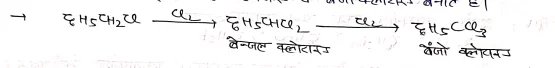 → C₆H₅CH₂Cl —Cl₂→ C₆H₅CHCl₂ —Cl₂→ C₆H₅CCl₃
बेन्जल क्लोराइड बेंजो क्लोराइड